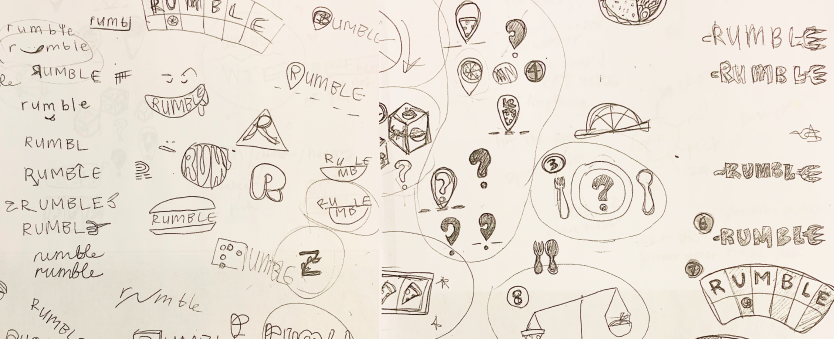 rumble
rumble
rumb
RUMBLE
BUMBLE
RUMBLE
RUMBLE
rumble
RUMBLE
RUMBL
R
RUM
RUMBLE
R
RU LE
MB
RUMBLE
RUMBLE
RU LE
MB
RUMBL
rumble
rumble
RUMBLE
rumble
RUMBL
?
?
?
?
?
?
3
?
8
RUMBLE
RUMBLE
RUMBLE
6
RUMBLE
7
RUMBLE